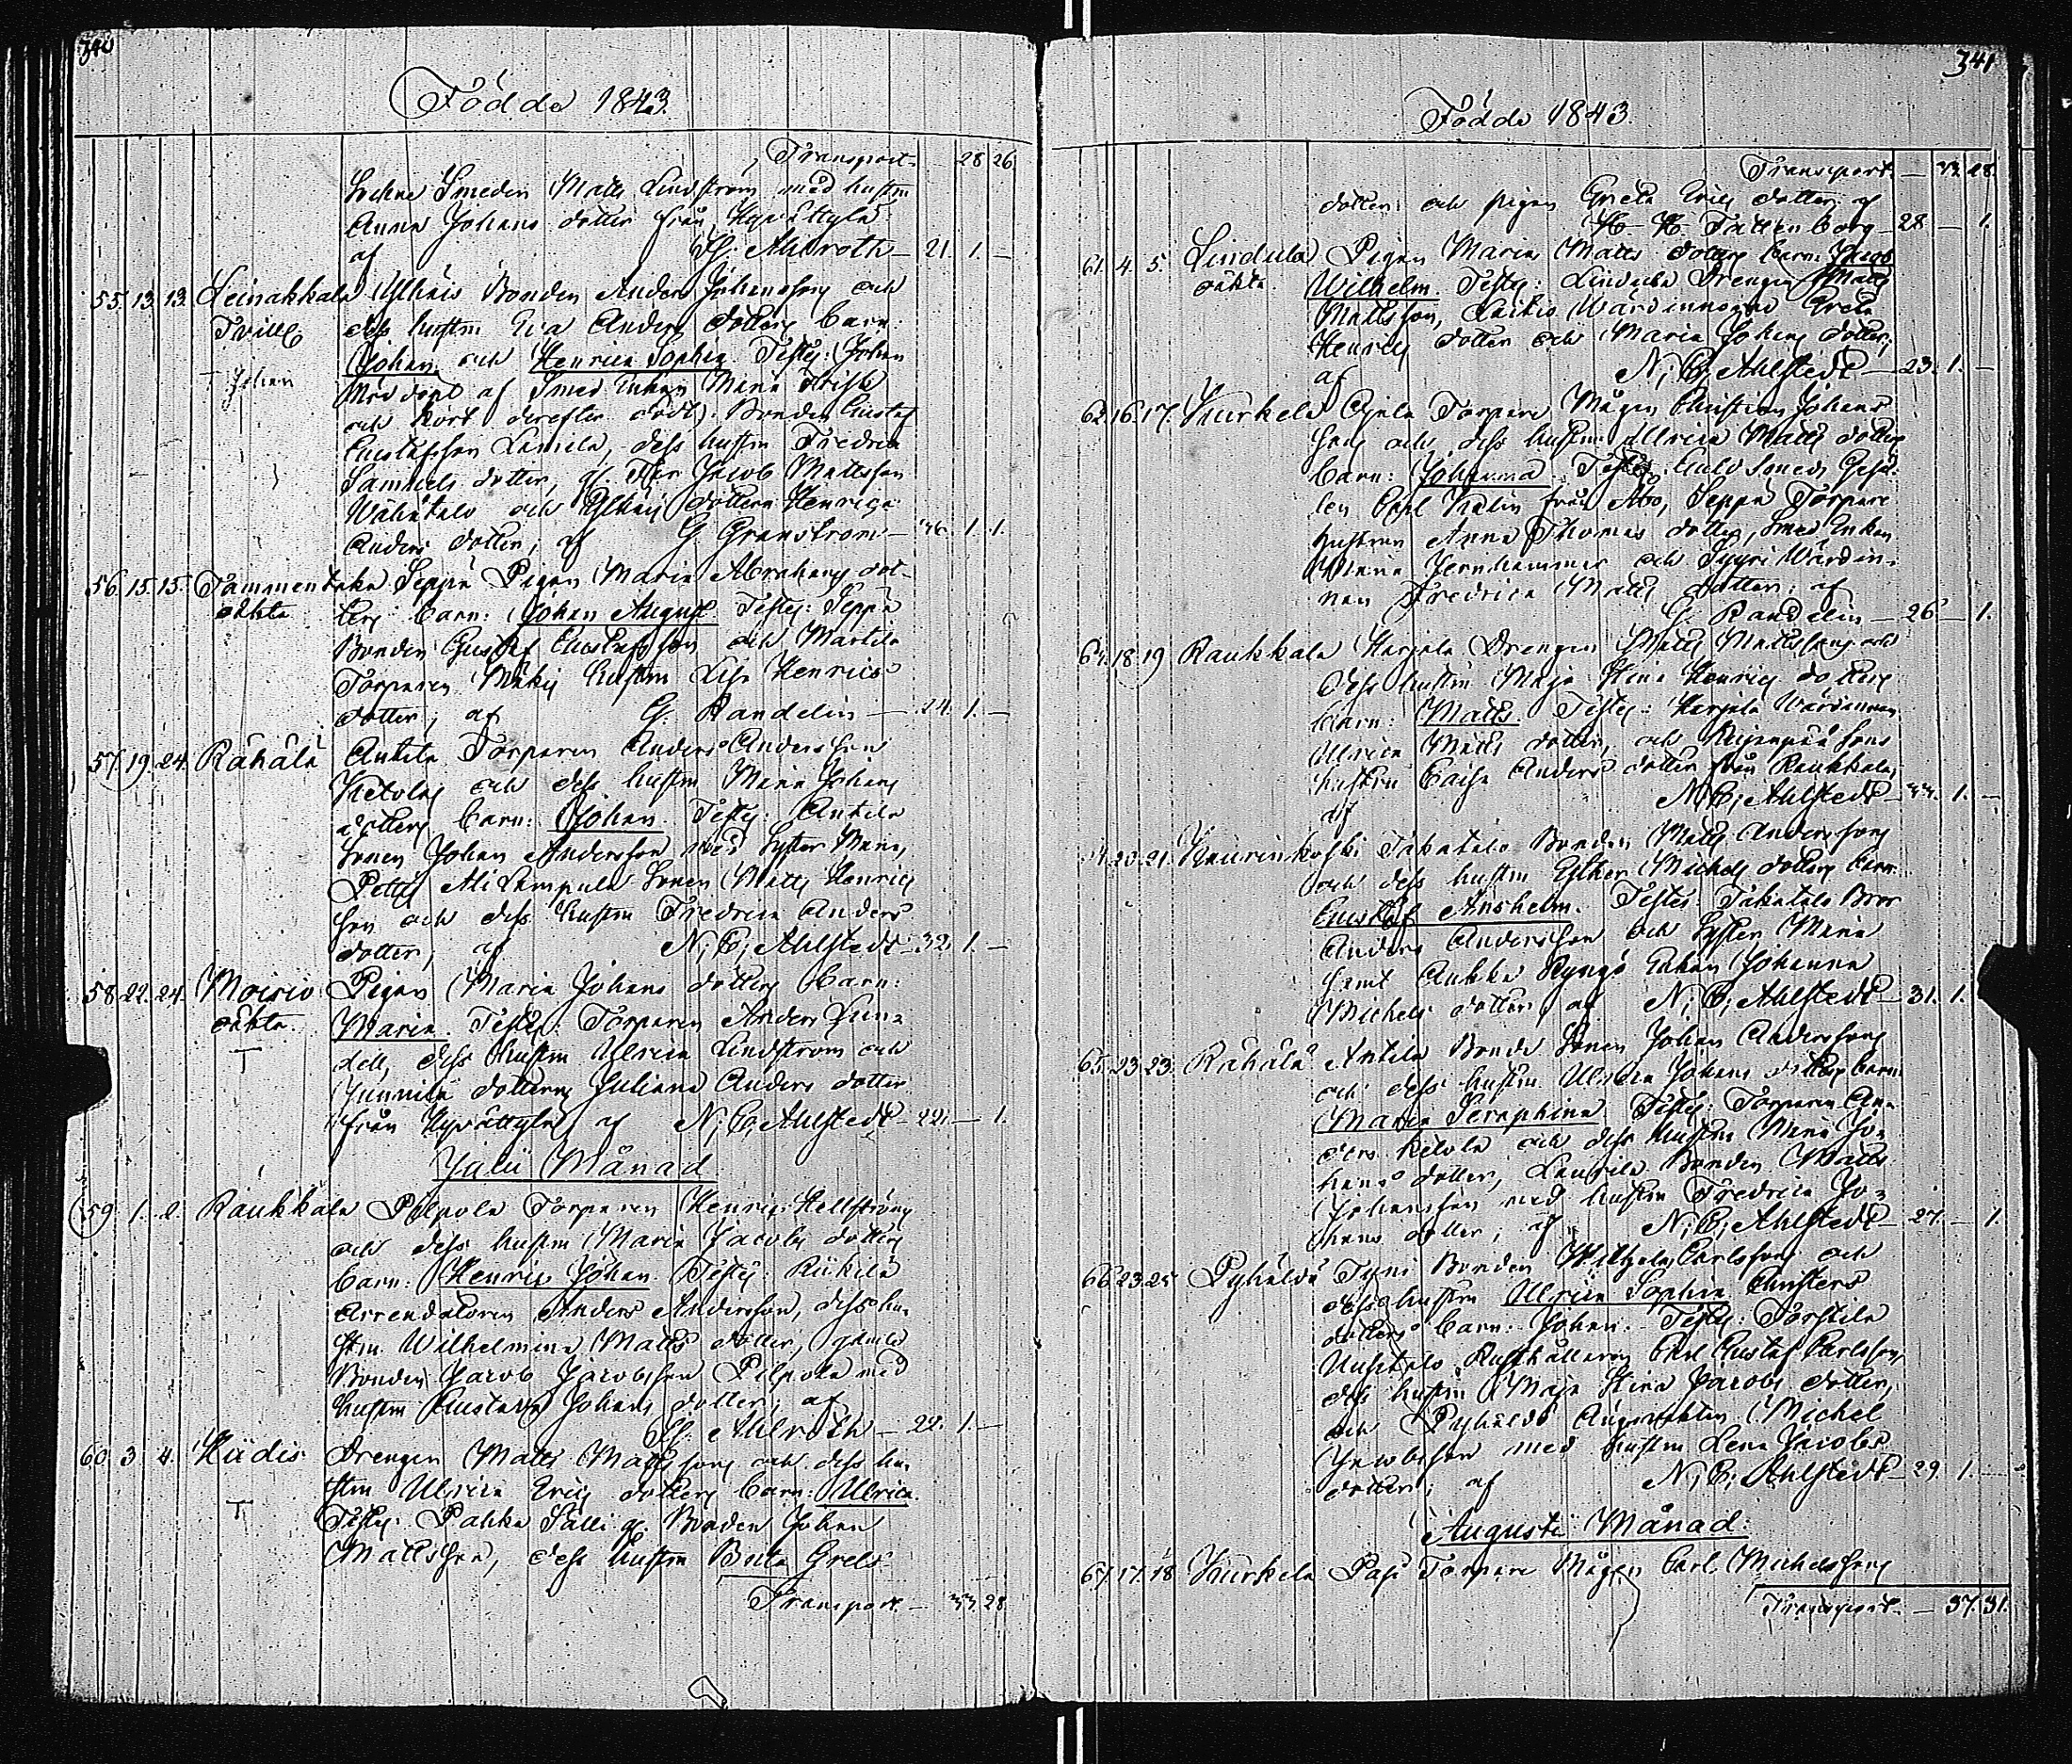 340
Födde 1843.
Transport 28 26
Smeden Matts Lindström med hustru
Anna Johans dotter från Hyvättylä
af G. Ahlroth — 21. 1. —
55. 13. 13. Leinakkala Ylhäis Bonden Anders Johanssons och
Tvill dess hustru Eva Anders dotters barn:
Johan och Henrica Sophia. Testes: (Johan
T Johan nöddöpt af Smed Enkan Maria
och kort derefter död): Bonden Gustaf
Gustafsson Lamela, dess hustru Fredrica
Samuels dotter, Jacob Mattsson
Wähätalo och Ylhäis dottern Henrica
Anders dotter; af G. Granström — 1. 1.
56. 15. 15. Tammentaka Seppä Pigan Maria Abrahams dot-
oäkta ters barn: Johan August. Testes: Seppä
Bonden Gustaf Gustafsson och Martila
Torparen Mäkis hustru Lisa Henrics
dotter; af G. Randelin — 24. 1. —
57. 19. 24. Rähälä Antila Torparen Anders Andersson
Ketolas och dess hustru Maria Johans
dotters barn: Johan. Testes: Antila
Sonen Johan Andersson med Syster Maria,
Ali Lampula Sonen Matts Henrics
son och dess hustru Fredrica Anders
dotter; af N; C; Ahlstedt — 32. 1. —
58. 22. 24. Moisio Pigan Maria Johans dotters Barn:
oäkta Maria. Testes: Torparen Anders Sun-
T dell, dess hustru Ulrica Lindström och
Junnila dottern Juliana Anders dotter
från Hyvättylä; af N; C; Ahlstedt — 22. — 1.
Julii Månad
59. 1. 2. Raukkala Pilpola Torparen Henric Hellströms
och dess hustru Maria Jacobs dotters
barn: Henric Johan. Testes: Riikilä
Arrendatoren Anders Andersson, dess hu-
stru Wilhelmina Matts dotter,
Bonden Jacob Jacobsson Pilpola med
hustru Gustava Johans dotter; af
G. Ahlroth — 22. 1. —
60. 3. 4. Kiidis Drengen Matts Mattssons och dess hu-
T stru Ulrica Erics dotters barn: Ulrica.
Testes: Pahka Sälli Bonden Johan
Mattsson, dess hustru Beata Grels
Transport. — 33. 28
341
Födde 1843.
Transport. — 33. 28.
dotter och pigan Greta Erics dotter; af
H. H. Fattenborg — 28 — 1.
61. 4. 5. Lindula Pigan Maria Matts dotters barn: Jacob
oäkta Wilhelm. Testes: Lindula Drengen Matts
Mattsson, Laikis Wärdinnorna Greta
Henrics dotter och Maria Johans dotter;
af N; C; Ahlstedt — 23. 1. —
62. 16. 17. Kurkela Ojala Torpare Mågen Christian Johans
sons och dess hustru Ulrica Matts dotters
barn: Johanna. Testes: Guld Smeds Gesäl-
len Carl Kalin från Åbo, Seppä Torpare
hustrun Anna Thomas dotter, Smed Enkan
Maria Jernhammar och Syyri Wärdin-
nan Fredrica Matts dotter; af
G. Randelin — 26 — 1.
64. 18. 19 Raukkala Harjala Drengen Matts Mattssons och
dess hustru Maja Stina Henrics dotters
barn: Matts. Testes: Harjala Wärdinnan
Ulrica Matts dotter, och
hustru Caisa Anders dotter från Raukkala;
af N; C; Ahlstedt — 1. —
20. 21. Kaurinkoski Takatalo Bonden Matts Anderssons
och dess hustru Esther Michels dotters barn:
Gustaf Anshelm. Testes: Takatalo Bror
Anders Andersson och Syster Maria
samt Enkan Johanna
Michels dotter; af N; C; Ahlstedt — 31. 1.
65. 23. 23. Rähälä Antila Bonde Sonen Johan Anderssons
och dess hustru Ulrica Johans dotters barn:
Maria Seraphina. Testes: Torparen An-
ders Ketola och dess hustru Maria Jo-
hans dotter, Laurila Bonden Matts
Johansson med hustru Fredrica Jo-
hans dotter; af N; C; Ahlstedt — 27. — 1.
66. 23. 25. Pyhäldö Tyni Bonden Wilhelm Carlssons och
dess hustru Ulrica Sophia Christers
dotters barn: Johan. Testes: Torstila
Uusitalo Rusthållaren Carl Gustaf Carlsson,
dess hustru Maja Stina Jacobs dotter,
och Pyhäldö Michel
Jacobsson med hustru Lena Jacobs
dotter; af N; C; Ahlstedt — 29. 1. —
Augusti Månad
67. 17. 18 Kurkela Pasi Torpare Mågen Carl Michelssons
Transport. — 37. 31.